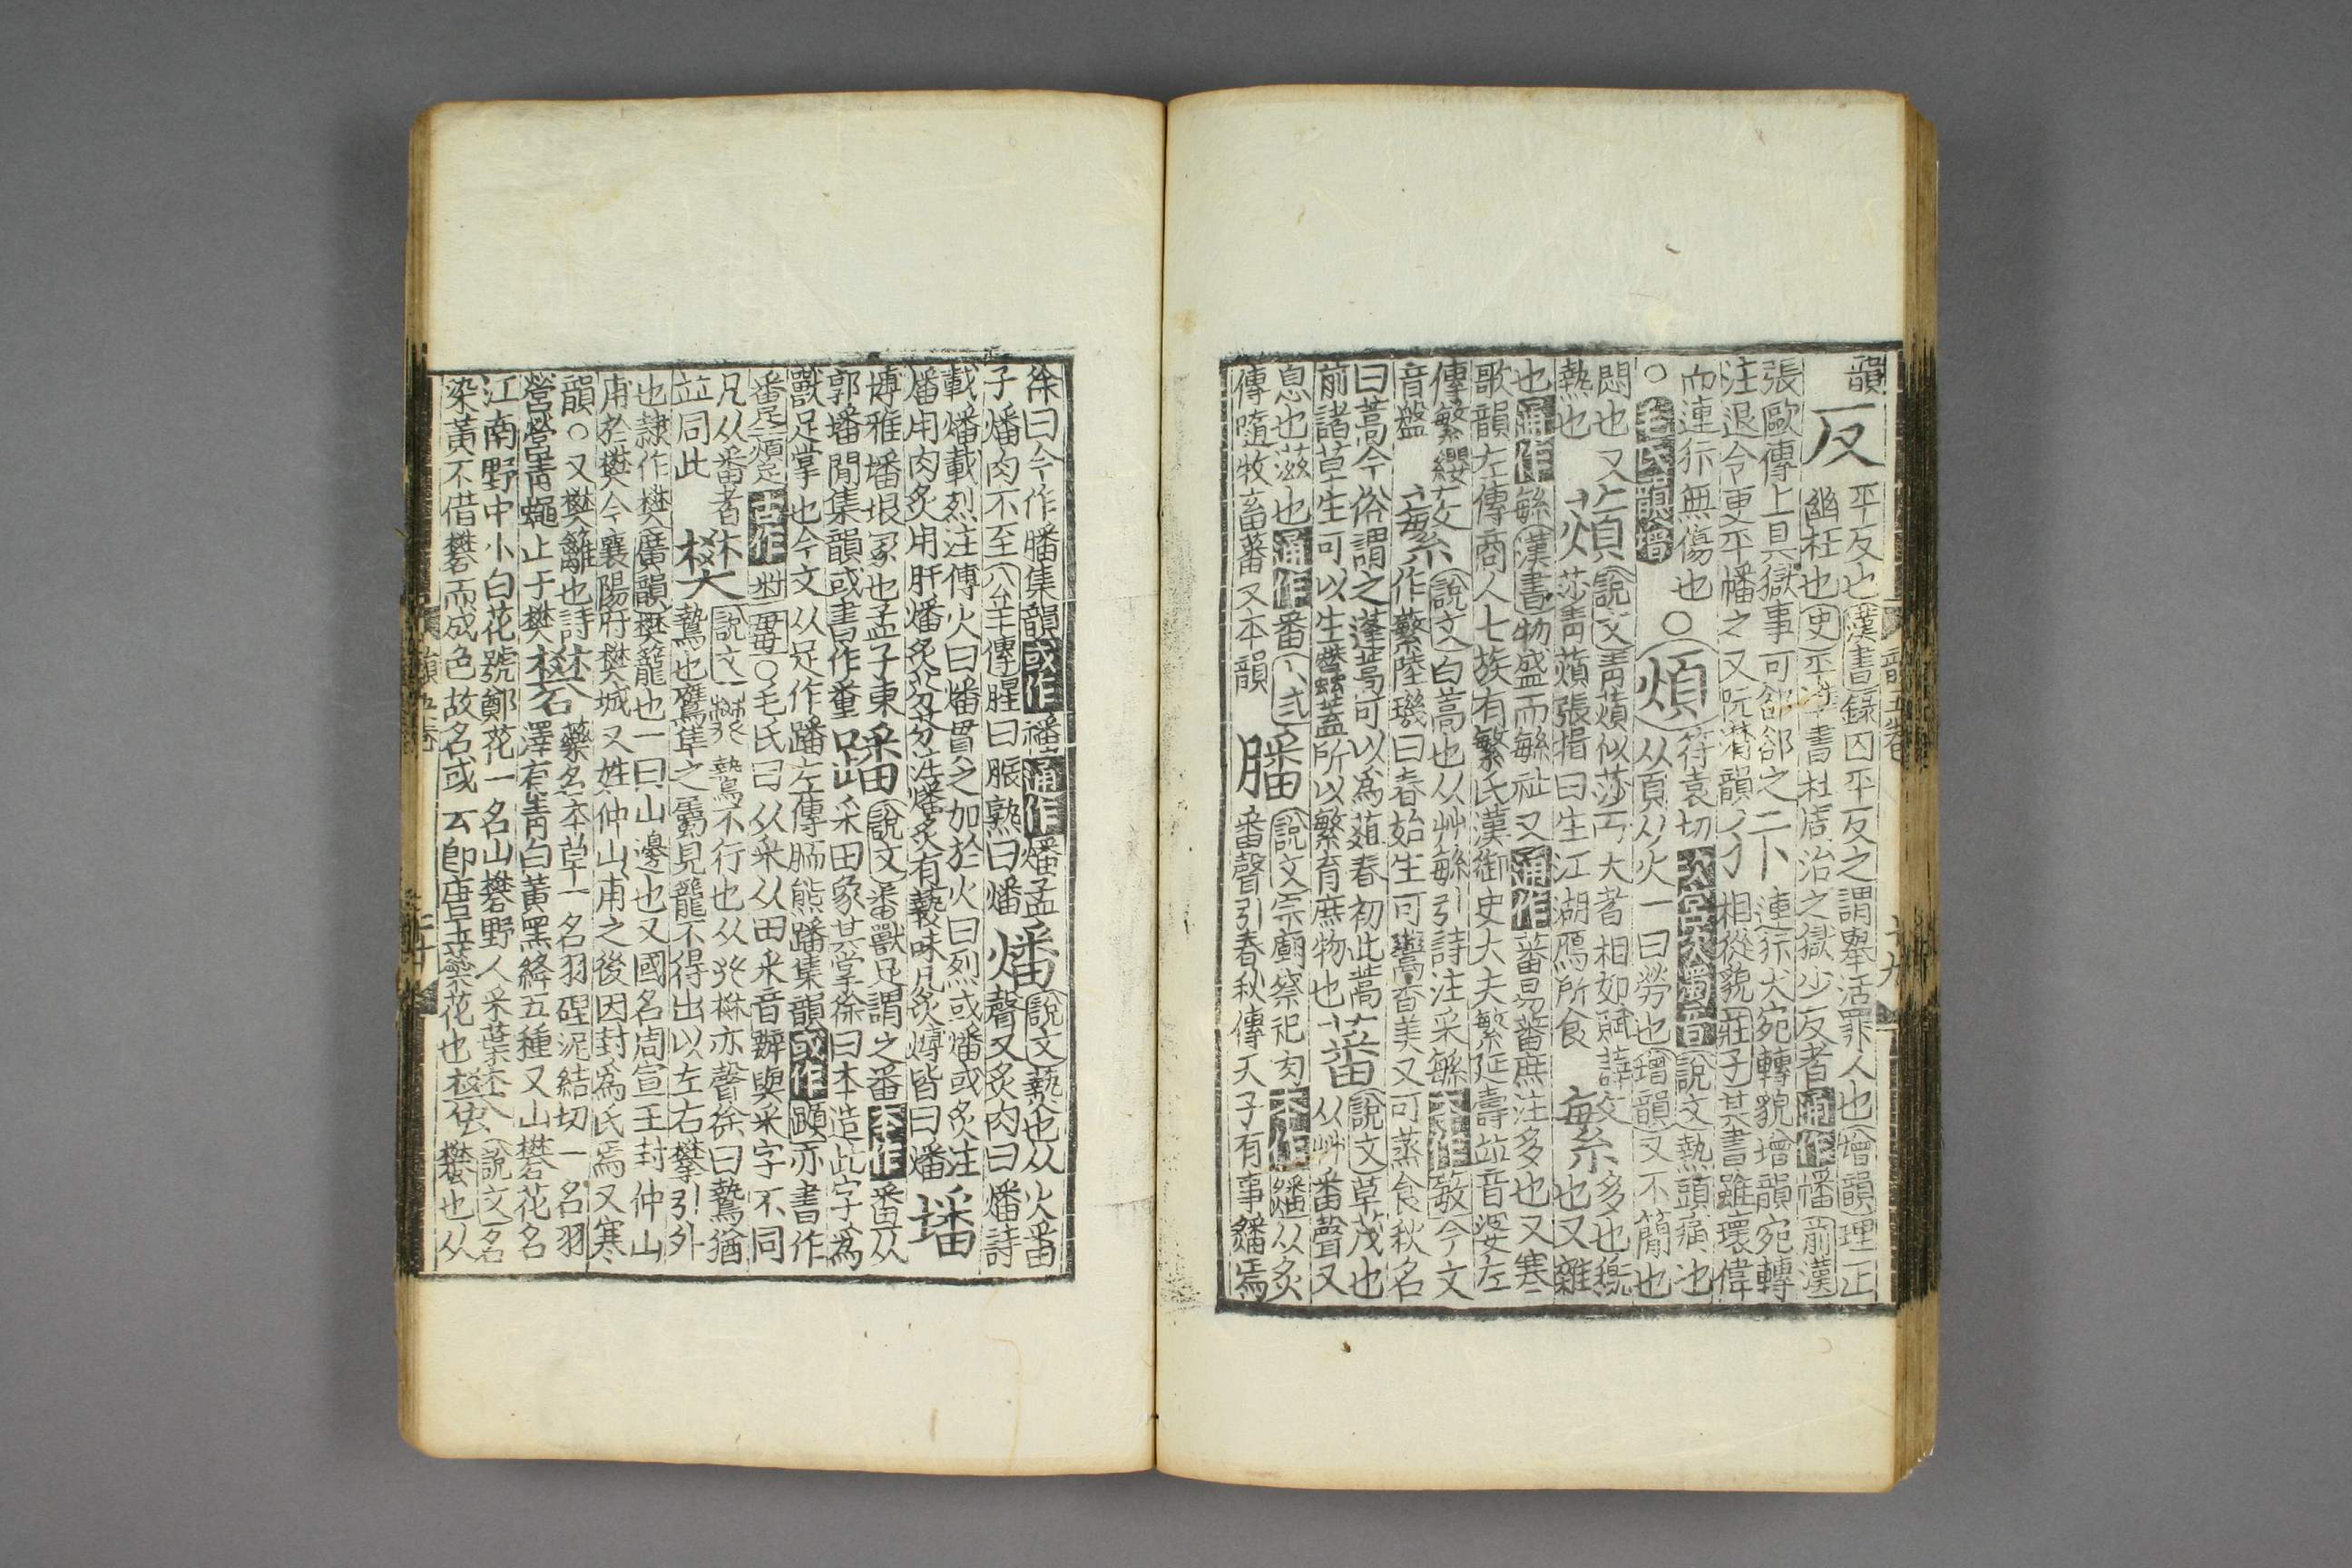 韻
反
平反也漢書錄囚平反之謂舉活罪人也增韻理正
幽枉也史平準書杜周治之獄少反者通作幡前漢
張歐傳上具獄事可卻卻之
注退令更平幡之又阮潸韻
犿
連犿宛轉貌增韻宛轉
相從貌莊子其書雖瓌偉
而連犿無傷也
○毛氏韻增
○煩
符袁切次宮次濁音說文熱頭痛也
从頁从火一曰勞也增韻又不簡也
悶也又
熱也
薠
說文靑薠似莎而大者相如賦薛
莎靑薠張揖曰生江湖鴈所食
繁
多也穊
也又雜
也通作緐漢書物盛而緐祉又通作蕃易蕃庶注多也又寒
歌韻左傳商人七族有繁氏漢御史大夫繁延壽竝音婆左
傳繁纓
音盤
蘩
說文白蒿也从艸緐引詩注采緐本作今文
作蘩陸璣曰春始生可鬻香美又可蒸食秋名
曰蒿今俗謂之蓬蒿可以爲葅春初此蒿
前諸草生可以生蠶蓋所以繁育庶物也
蕃
說文草茂也
从艸番聲又
息也滋也通作番
傳隨牧畜蕃又本韻
膰
說文宗廟祭祀肉本作䊩从炙
番聲引春秋傳天子有事䊩焉
韻五卷
十九
徐曰今作膰集韻或作𥛮通作燔孟
子燔肉不至公羊傳腥曰脤熟曰燔
燔
說文爇也从火番
聲又炙肉曰燔詩
載燔載烈注傅火曰燔貫之加於火曰烈或燔或炙注
燔用肉炙用肝燔炙芬芬注燔炙有味凡炙燖皆曰燔
墦
博雅墦垠冢也孟子東
郭墦閒集韻或書作
蹯
說文番獸足謂之番本作番从
釆田象其掌徐曰本造此字爲
獸足掌也今文从足作蹯左傳胹熊蹯集韻或作亦書作
古作○毛氏曰从釆从田釆音辨與采字不同
凡从番者
竝同此
樊
說文鷙不行也从𠬜棥亦聲徐曰鷙猶
鷙也鷹隼之屬見籠不得出以左右攀引外
也隷作樊廣韻樊籠也一曰山邊也又國名周宣王封仲山
甫名樊今襄陽府樊城又姓仲山甫之後因封爲氏焉又寒
韻○又樊籬也詩
營營靑蠅止于樊
礬
藥名本草一名羽碮泥結切一名羽
澤有靑白黃黑絳五種又山礬花名
江南野中小白花號鄭花一名山礬野人采葉
染黃不借礬而成色故名或云卽唐玉蘂花也
蠜
說文一名
蠜也从